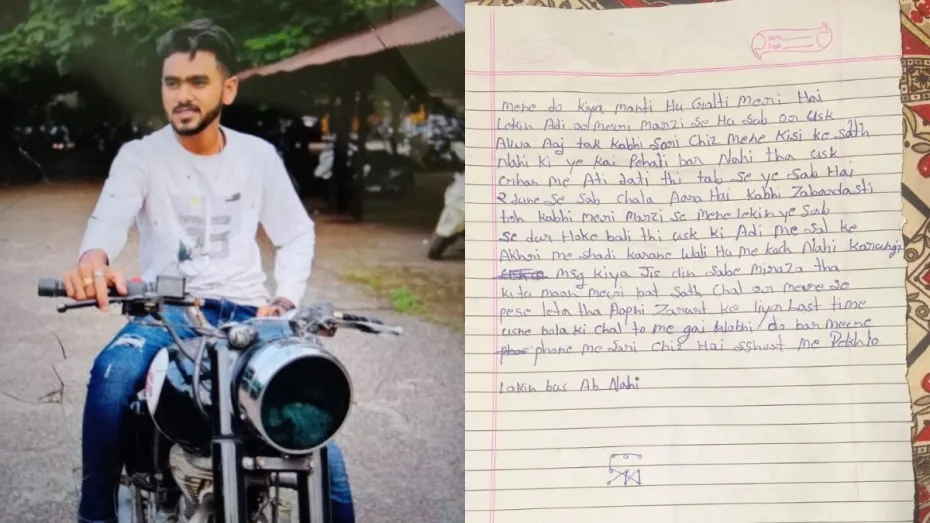 mene do kiya manti Hu Galti Meri Hai
Lekin Adi or meri Marzi se Hu Sab or usk
Alwa Aaj tak kabhi Sari Chiz Mene Kisi ke Sath
Nahi ki ye koi Pehali bar Nahi tha usk
me Ati Jati thi tab se ye Sab Hai
2 June Se Sab Chala Aara Hai kabhi Zabardasti
toh kabhi meri Marzi se Mene lekin ye Sab
Se dur Hoke bali thi usk ki Adi me Sal ke
Akhri me Shadi karane Wali Hu me kuch Nahi karungi
msg kiya Jis din Sabe tha
ki tu maan meri bat Sath Chal or mere se
pese leta tha Aophi Zarurt ke liye Last time
usne bola ki chal to me gai Wobhi do bar mere
phone me Sari Chiz Hai me
Lakin bas Ab Nahi